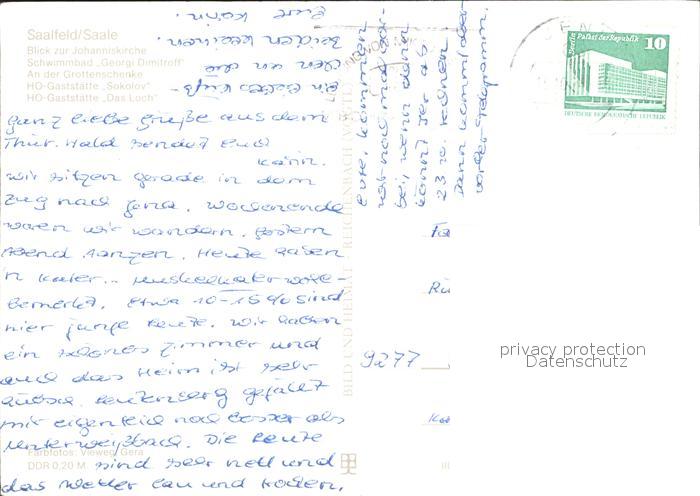 Saalfeld/Saale
Blick zur Johanniskirche
Schwimmbad „Georgi Dimitroff"
An der Grottenschenke
HO-Gaststätte „Sokolov"
HO-Gaststätte „Das Loch"
ganz liebe Grüße aus dem
Thür. Wald sendet Euch
Karin.
Wir sitzen gerade in dem
Zug nach Jena. Wochenende
waren wir wandern. Gestern
Abend tanzen. Heute haben
'n Kater.. Muskelkater wohl-
bemerkt. Etwa 10-15% sind
hier junge Leute. Wir haben
ein schönes Zimmer und
auch das Heim ist sehr
gefällt
mir eigentlich noch besser als
Unterweißbach. Die Leute
sind sehr nett und
das Wetter lau und trocken.
Farbfotos: Vieweg, Gera
DDR 0,20 M
Ein dickes Küß-
chen an die
beiden Kleinen.
Eure Karin.
Leute, kommen
wir noch mal vor-
bei, wenn dann
könnt Ihr ab
23 rechnen
Dann kommt aber
vorher Telegramm.
BILD UND HEIMAT REICHENBACH
Fa
Ru
9277
Ka
III
10
Berlin Palast der Republik
DEUTSCHE DEMOKRATISCHE REPUBLIK
privacy protection
Datenschutz